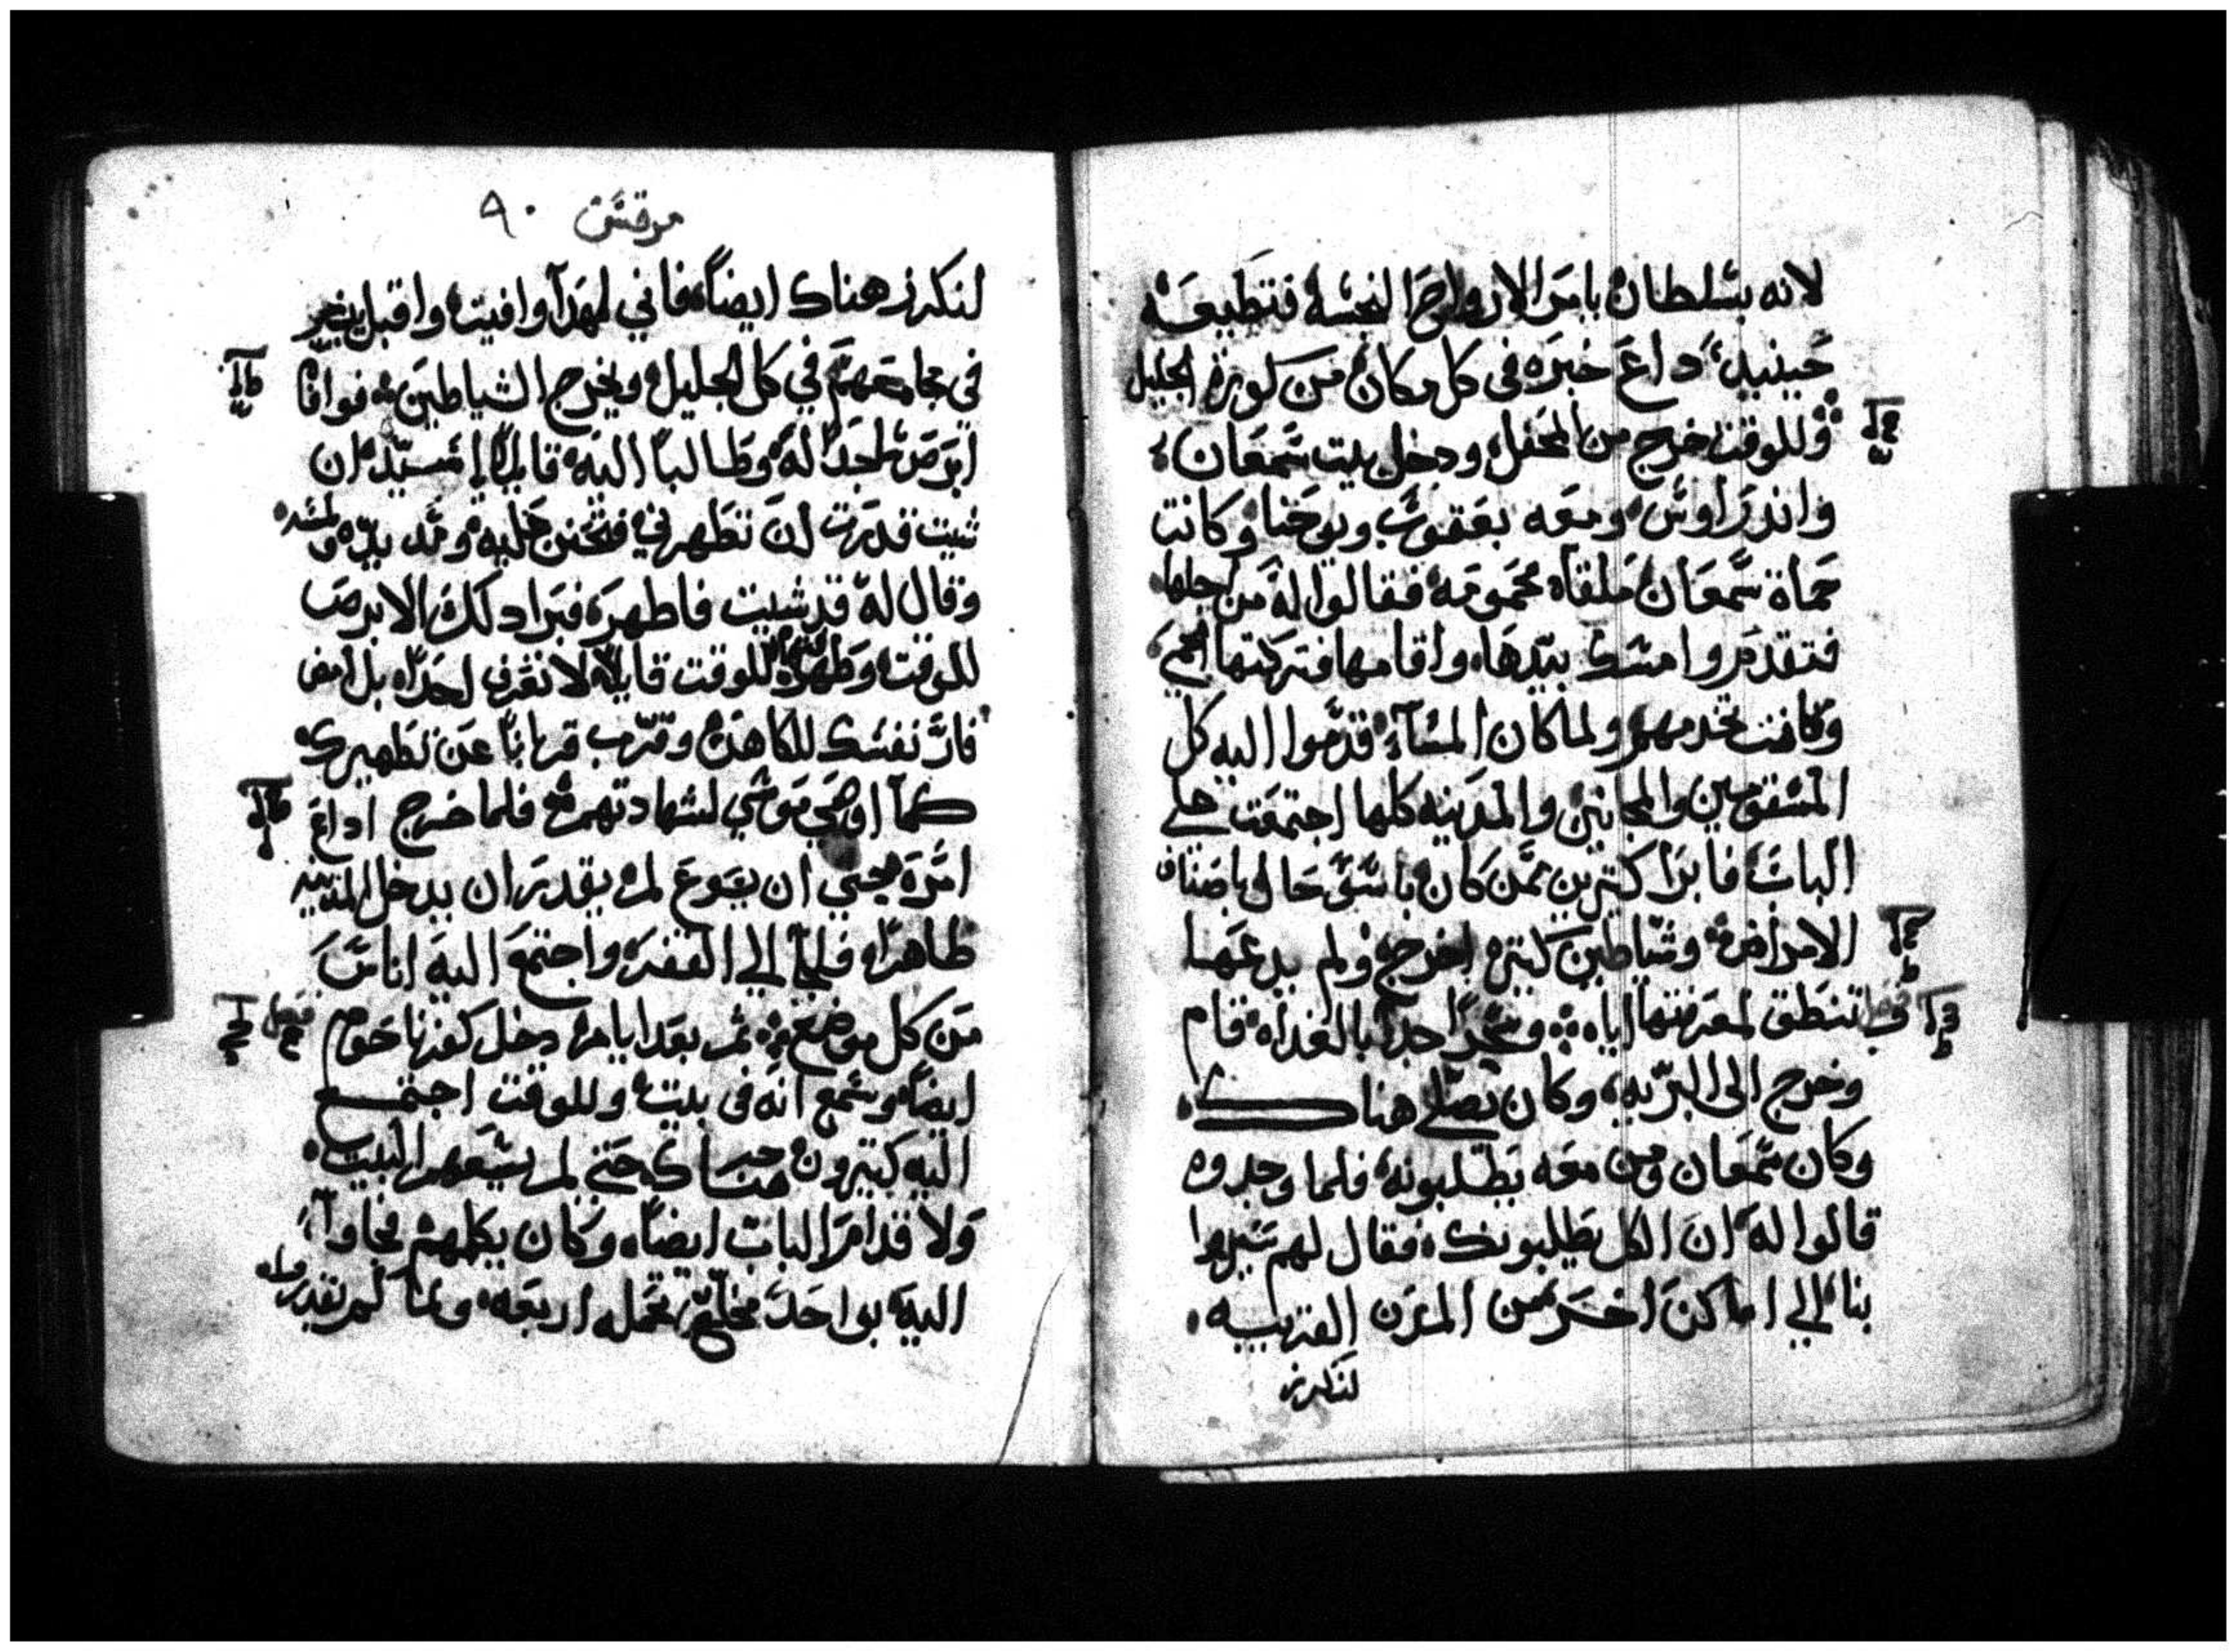 لانه بسلطان يامر الارواح النجسه فتطيعه
حينيد داع خبره في كل مكان من كورة الجليل
وللوقت خرج من المحفل ودخل بيت سمعان
واندراوس ومعه يعقوب ويوحنا وكانت
حماة سمعان ملقاه محمومه فقالوا له من اجلها
فتقدم وامسك بيدها واقامها فتركتها الحمي
وكانت تخدمهم ولما كان المسآء قدموا اليه كل
المسقومين والمجانين والمدينه كلها اجتمعت علي
الباب فابرا كتيرين ممن كان باسوّ حال باصناف
الامراض وشياطين كتيره اخرج ولم يدعها
تنطق لمعرفتها اياه وسحرًا جدًا بالغداه قام
وخرج الي البريه وكان يصلي هناك
وكان سمعان ومن معه يطلبونه فلما وجدوه
قالوا له ان الكل يطلبونك فقال لهم سيروا
بنا الي اماكن اخر من المدن القريبه
لنكرز
مرقس ٩٠
لنكرز هناك ايضاً فاني لهدآ وافيت واقبل يبشر
في مجامعهم في كل الجليل ويخرج الشياطين فوافا
ابرص ساجداً له وطالباً اليه قايلاً يا سيد ان
شيت قدرت ان تطهرني فتحنن عليه ومد يده ولمسه
وقال له قد شيت فاطهر فبرا دلك الابرص
للوقت وطهر للوقت قايلاً لا تعرف احداً بل امض
فار نفسك للكاهن وقرب قرباناً عن تطهيرك
كمآ اوصي موسي لشهادتهم فلما خرج اداع
امره حتي ان يسوع لم يقدر ان يدخل المدينه
ظاهراً فلجآ الي القفر واجتمع اليه اناس
من كل موضع تم بعد ايام دخل كفرناحوم
ايضاً وسمع انه في بيت وللوقت اجتمع
اليه كتيرون هناك حتي لم يسعهم البيت
ولا قدام الباب ايضاً وكان يكلمهم فجاوآ
اليه بواحد مخلع تحمله اربعه ولما لم تقدروا